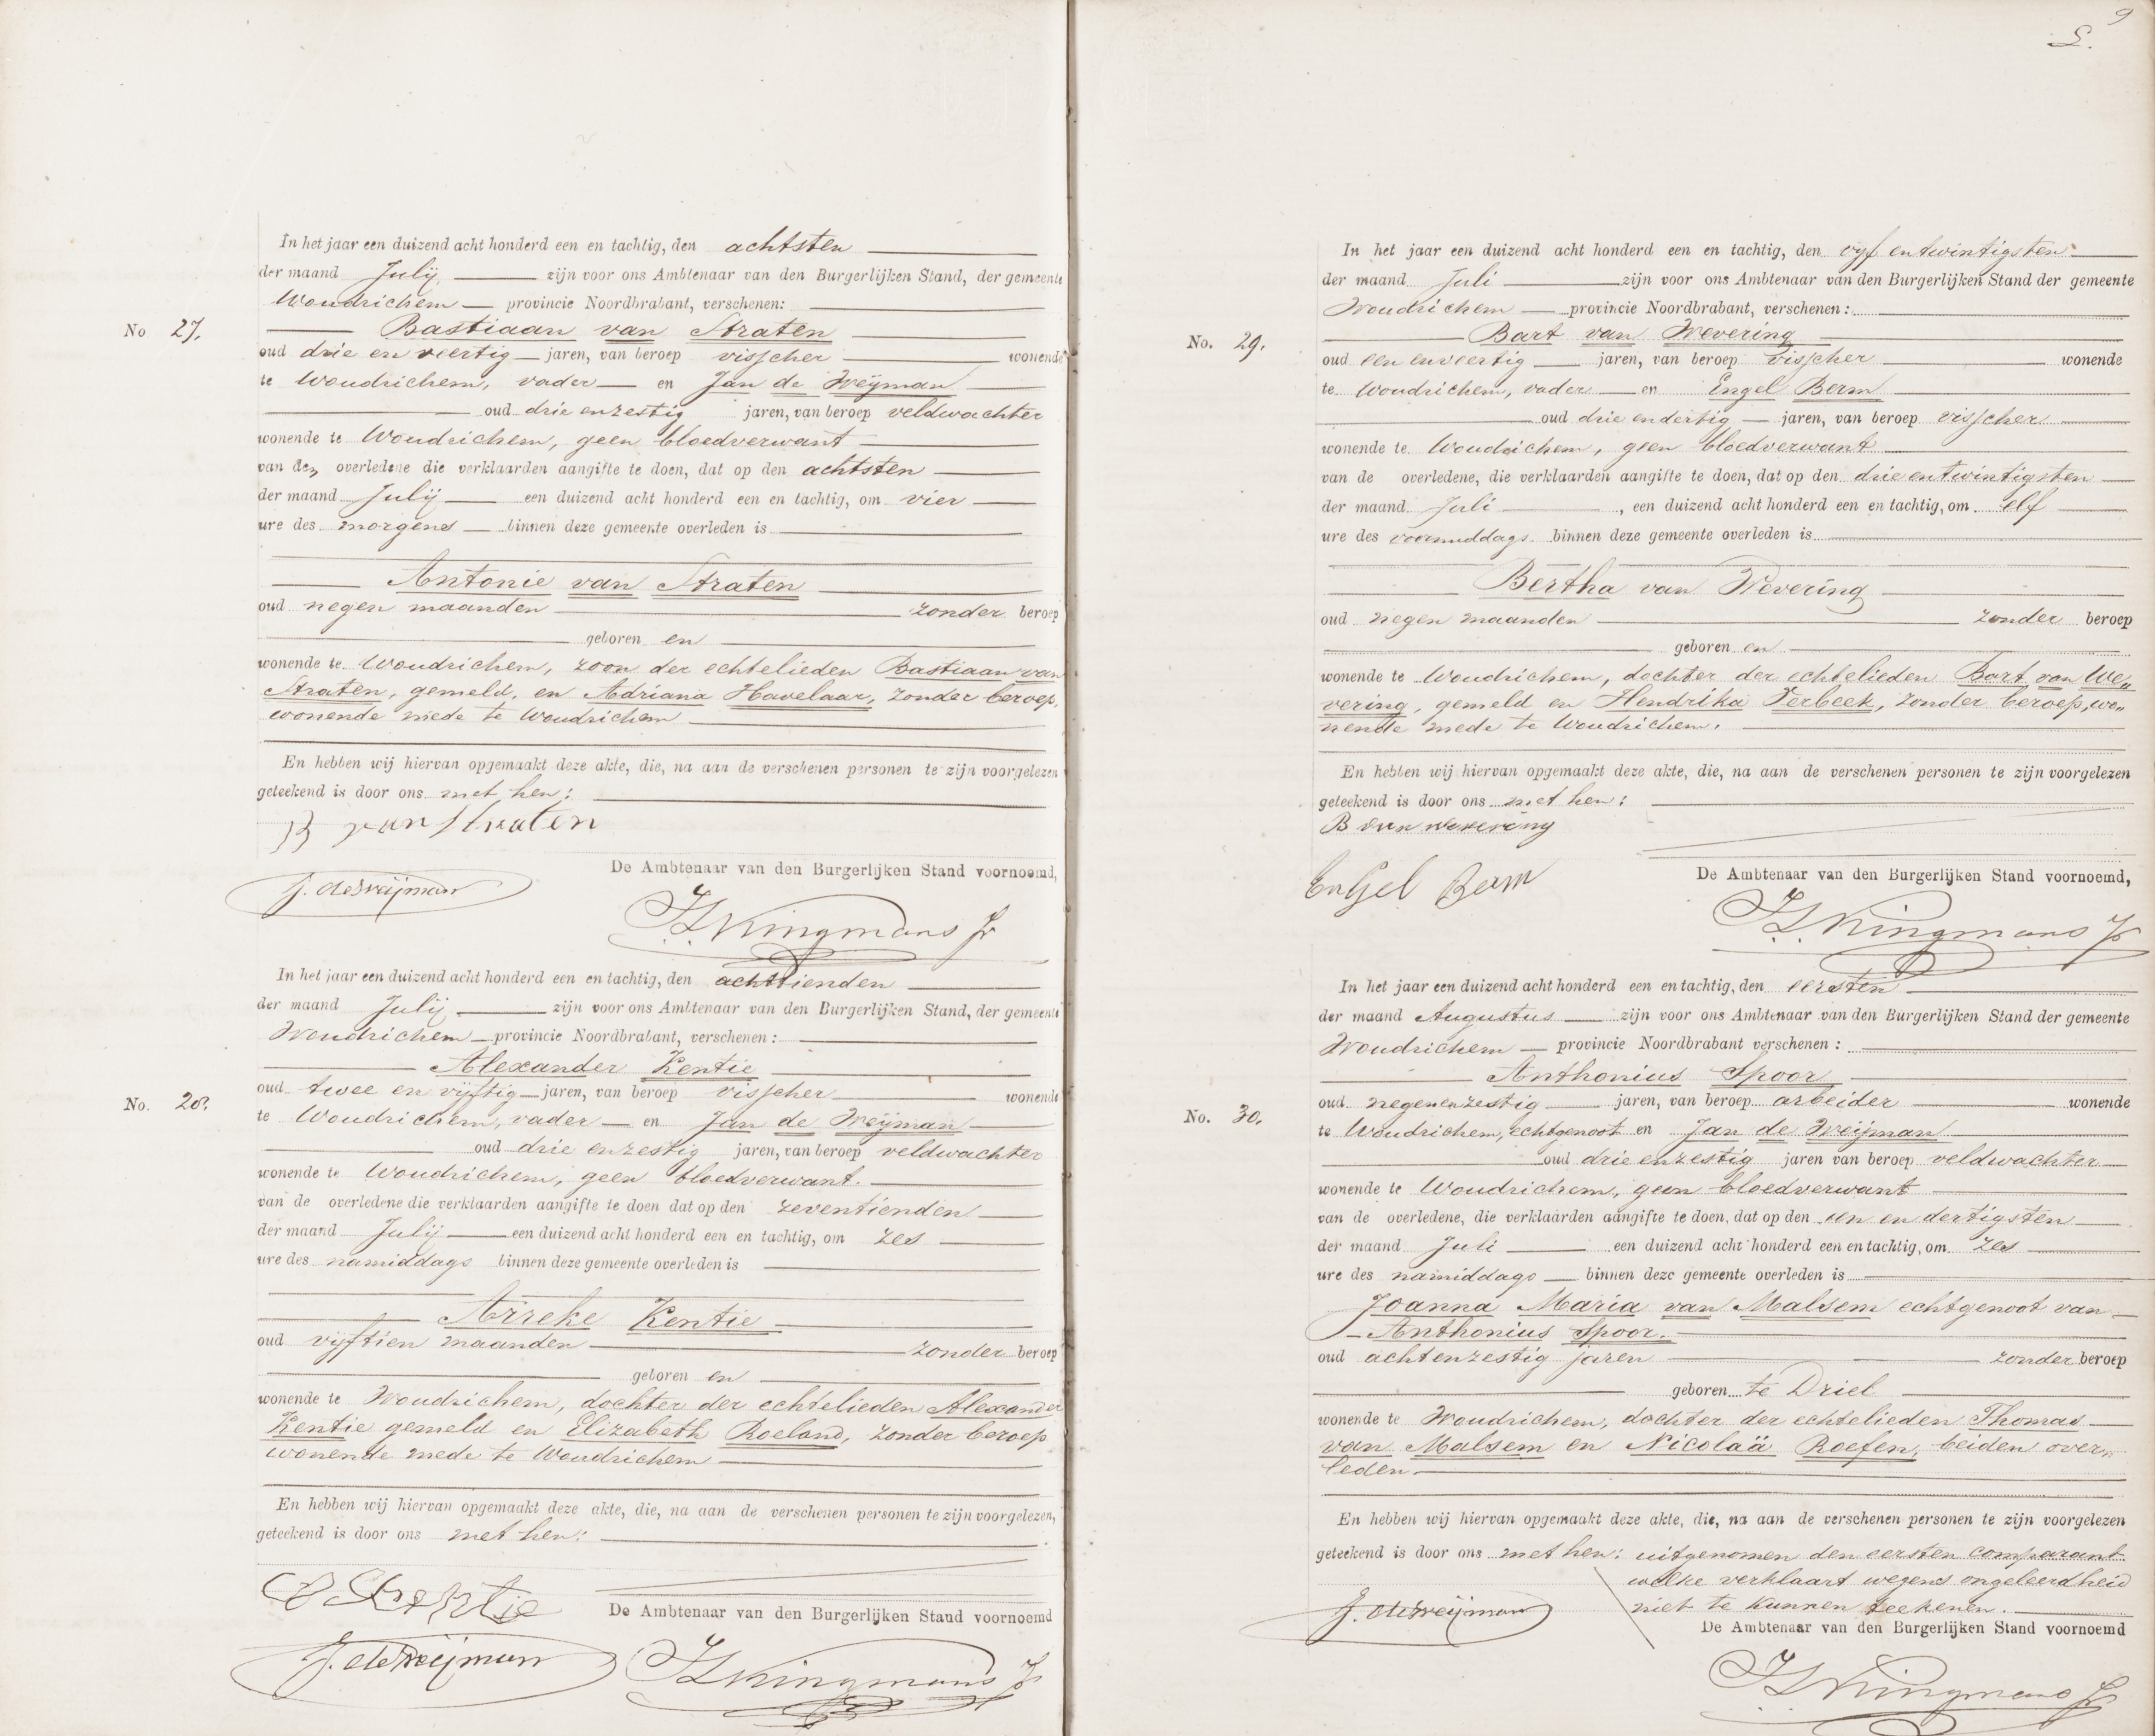 In het jaar een duizend acht honderd een en tachtig, den achtsten
der maand July, zijn voor ons Ambtenaar van den Burgerlijken Stand, der gemeente
Woudrichem provincie Noordbrabant, verschenen:
No 27. Bastiaan van Straten
oud drie en veertig jaren, van beroep visscher wonende
te Woudrichem, vader en Jan de Weijman
oud drie enzestig jaren, van beroep veldwachter
wonende te Woudrichem, geen bloedverwant
van den overledene die verklaarden aangifte te doen, dat op den achtsten
der maand July een duizend acht honderd een en tachtig, om vier
ure des morgens binnen deze gemeente overleden is
Antonie van Straten
oud negen maanden zonder beroep
geboren en
wonende te Woudrichem, zoon der echtelieden Bastiaan van
Straten, gemeld, en Adriana Havelaar, zonder beroep,
wonende mede te Woudrichem
En hebben wij hiervan opgemaakt deze akte, die, na aan de verschenen personen te zijn voorgelezen
geteekend is door ons met hen:
B van Straten
De Ambtenaar van den Burgerlijken Stand voornoemd,
J. de Weijman
Kingmans Jr
In het jaar een duizend acht honderd een en tachtig, den achttienden
der maand July zijn voor ons Ambtenaar van den Burgerlijken Stand, der gemeente
Woudrichem provincie Noordbrabant, verschenen:
Alexander Kentie
No. 28. oud twee en vijftig jaren, van beroep visscher wonende
te Woudrichem, vader en Jan de Weijman
oud drie enzestig jaren, van beroep veldwachter
wonende te Woudrichem, geen bloedverwant.
van de overledene die verklaarden aangifte te doen dat op den zeventienden
der maand July een duizend acht honderd een en tachtig, om zes
ure des namiddags binnen deze gemeente overleden is
Arreke Kentie
oud vijftien maanden zonder beroep
geboren en
wonende te Woudrichem, dochter der echtelieden Alexander
Kentie gemeld en Elizabeth Roeland, zonder beroep
wonende mede te Woudrichem
En hebben wij hiervan opgemaakt deze akte, die, na aan de verschenen personen te zijn voorgelezen,
geteekend is door ons met hen:
De Ambtenaar van den Burgerlijken Stand voornoemd
J. de Weijman
Kingmans Jr
9
In het jaar een duizend acht honderd een en tachtig, den vijf entwintigsten
der maand Juli zijn voor ons Ambtenaar van den Burgerlijken Stand der gemeente
Woudrichem provincie Noordbrabant, verschenen:
No. 29. Bart van Wevering
oud een enveertig jaren, van beroep visscher wonende
te Woudrichem, vader en Engel Berm
oud drie endertig jaren, van beroep visscher
wonende te Woudrichem, geen bloedverwant
van de overledene, die verklaarden aangifte te doen, dat op den drieentwintigsten
der maand Juli , een duizend acht honderd een en tachtig, om elf
ure des voormiddags binnen deze gemeente overleden is
Bertha van Wevering
oud negen maanden zonder beroep
geboren en
wonende te Woudrichem, dochter der echtelieden Bart van We„
vering, gemeld en Hendrika Verbeek, zonder beroep, wo„
nende mede te Woudrichem.
En hebben wij hiervan opgemaakt deze akte, die, na aan de verschenen personen te zijn voorgelezen
geteekend is door ons met hen:
B van wevering
Engel Berm
De Ambtenaar van den Burgerlijken Stand voornoemd,
Kingmans Jr
In het jaar een duizend acht honderd een en tachtig, den eersten
der maand Augustus zijn voor ons Ambtenaar van den Burgerlijken Stand der gemeente
Woudrichem provincie Noordbrabant verschenen:
Anthonius Spoor
No. 30. oud negenenzestig jaren, van beroep arbeider wonende
te Woudrichem, echtgenoot en Jan de Weijman
oud drie enzestig jaren van beroep veldwachter
wonende te Woudrichem, geen bloedverwant
van de overledene, die verklaarden aangifte te doen, dat op den een en dertigsten
der maand Juli een duizend acht honderd een en tachtig, om zes
ure des namiddags binnen deze gemeente overleden is
Joanna Maria van Malsem echtgenoot van
Anthonius Spoor.
oud achtenzestig jaren zonder beroep
geboren te Driel
wonende te Woudrichem, dochter der echtelieden Thomas
van Malsem en Nicolaä Roefen, beiden over„
leden.
En hebben wij hiervan opgemaakt deze akte, die, na aan de verschenen personen te zijn voorgelezen
geteekend is door ons met hen: uitgenomen den eersten comparant
welke verklaart wegens ongeleerdheid
niet te kunnen teekenen.
J. de Weijman
De Ambtenaar van den Burgerlijken Stand voornoemd
Kingmans Jr